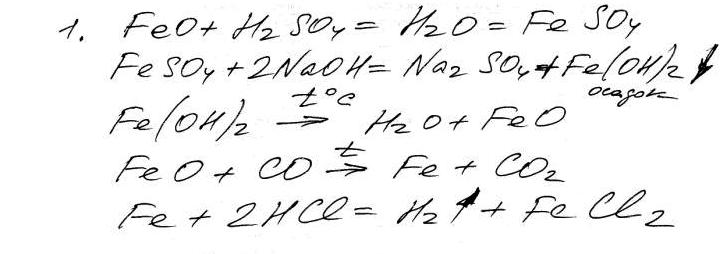 1. FeO + H₂SO₄ = H₂O = FeSO₄
FeSO₄ + 2NaOH = Na₂SO₄ + Fe(OH)₂↓
осадок
t°C
Fe(OH)₂ → H₂O + FeO
t
FeO + CO → Fe + CO₂
Fe + 2HCl = H₂↑ + FeCl₂